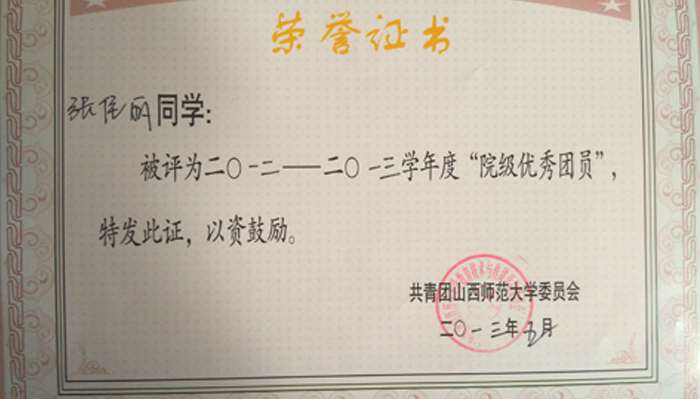 荣誉证书
张佳丽同学：
被评为二〇一二——二〇一三学年度“院级优秀团员”，
特发此证，以资鼓励。
共青团山西师范大学委员会
二〇一三年五月